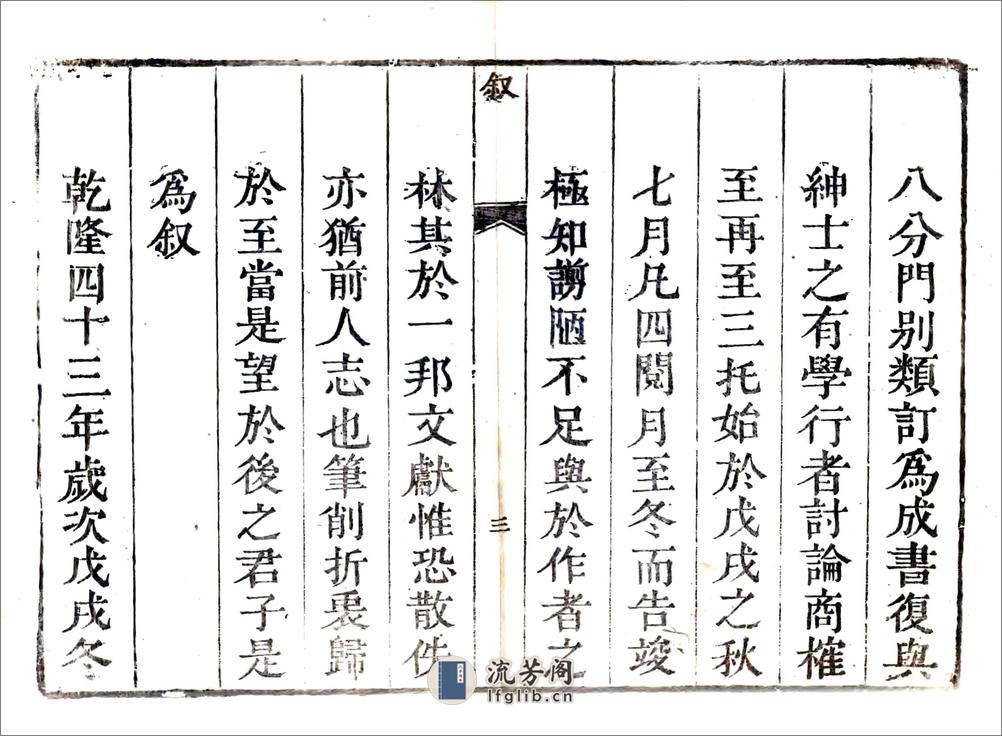 八分門別類訂爲成書復與
紳士之有學行者討論商榷
至再至三托始於戊戌之秋
七月凡四閱月至冬而告竣
極知謭陋不足與於作者之
叙
三
林其於一邦文獻惟恐散佚
亦猶前人志也筆削折衷歸
於至當是望於後之君子是
爲叙
乾隆四十三年歲次戊戌冬
流芳阁
lfglib.cn